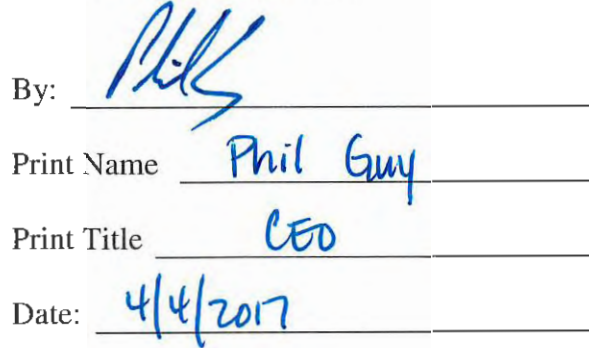 By: Phil G
Print Name Phil Guy
Print Title CEO
Date: 4/4/2017